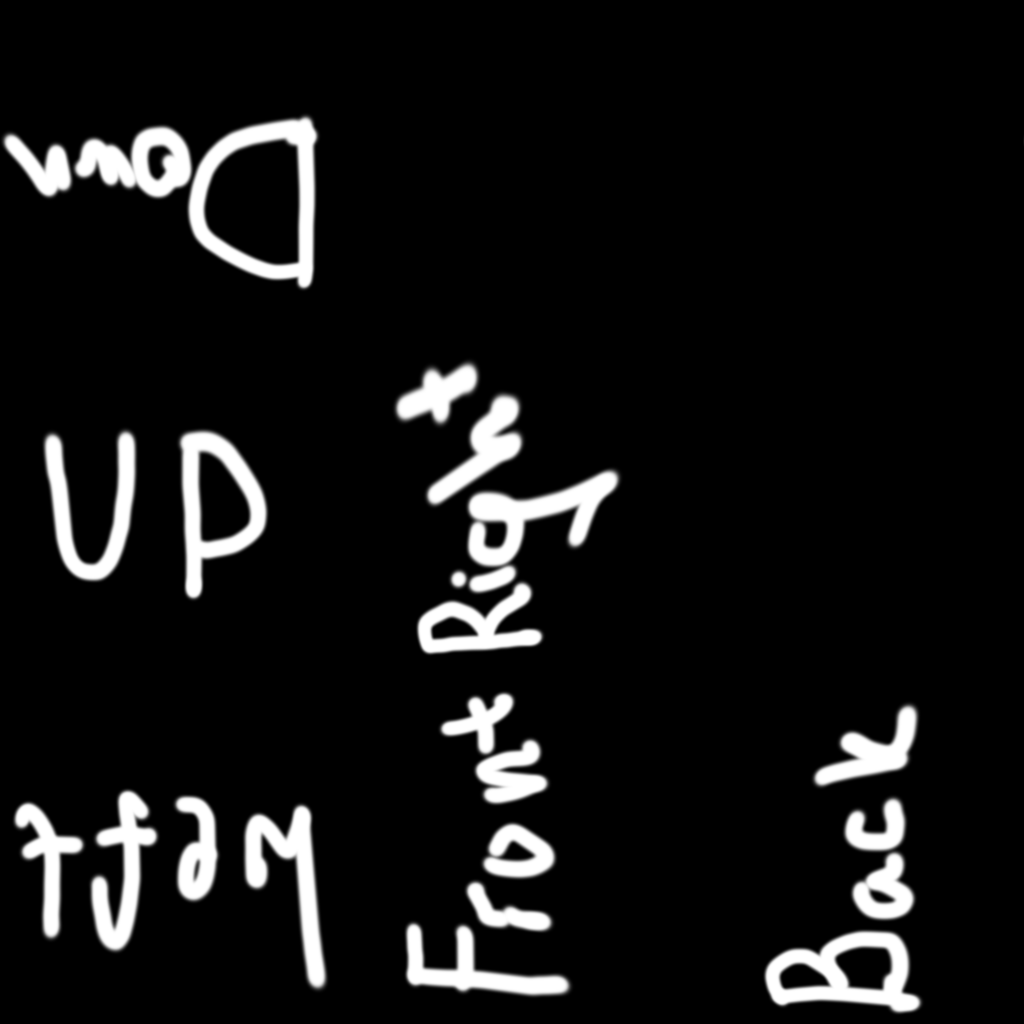 Down
UP
Left
Front Right
Back